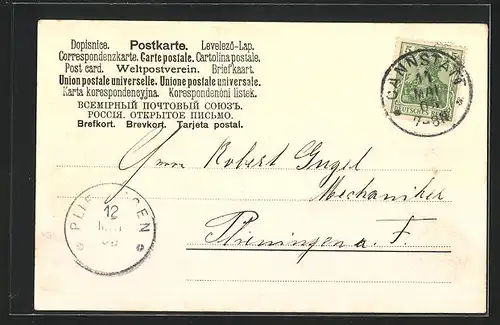 Dopisnice. Postkarte. Levelező-Lap.
Correspondenzkarte. Carte postale. Cartolina postale.
Post card. Weltpostverein. Briefkaart.
Union postale universelle. Unione postale universale.
Karta korespondencyjna. Korespondenční listek.
ВСЕМІРНЫЙ ПОЧТОВЫЙ СОЮЗЪ.
РОССІЯ. ОТКРЫТОЕ ПИСЬМО.
Brefkort. Brevkort. Tarjeta postal.
CANNSTATT
11
MAI
7-8N
Herrn Robert Engel
Mechaniker
Plieningen a. F.
12